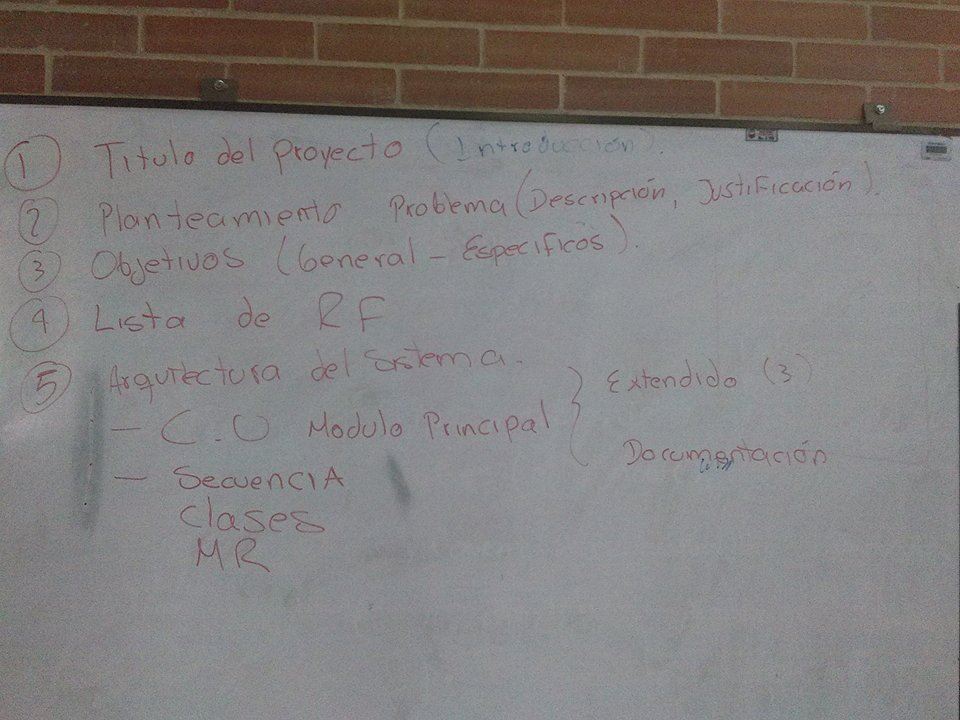 1 Titulo del proyecto (Introducción).
2 Planteamiento Problema (Descripción, Justificación).
3 Objetivos (General - Especificos).
4 Lista de RF
5 Arquitectura del sistema.
- C.U Modulo Principal } Extendido (3)
Documentación
- Secuencia
Clases
MR